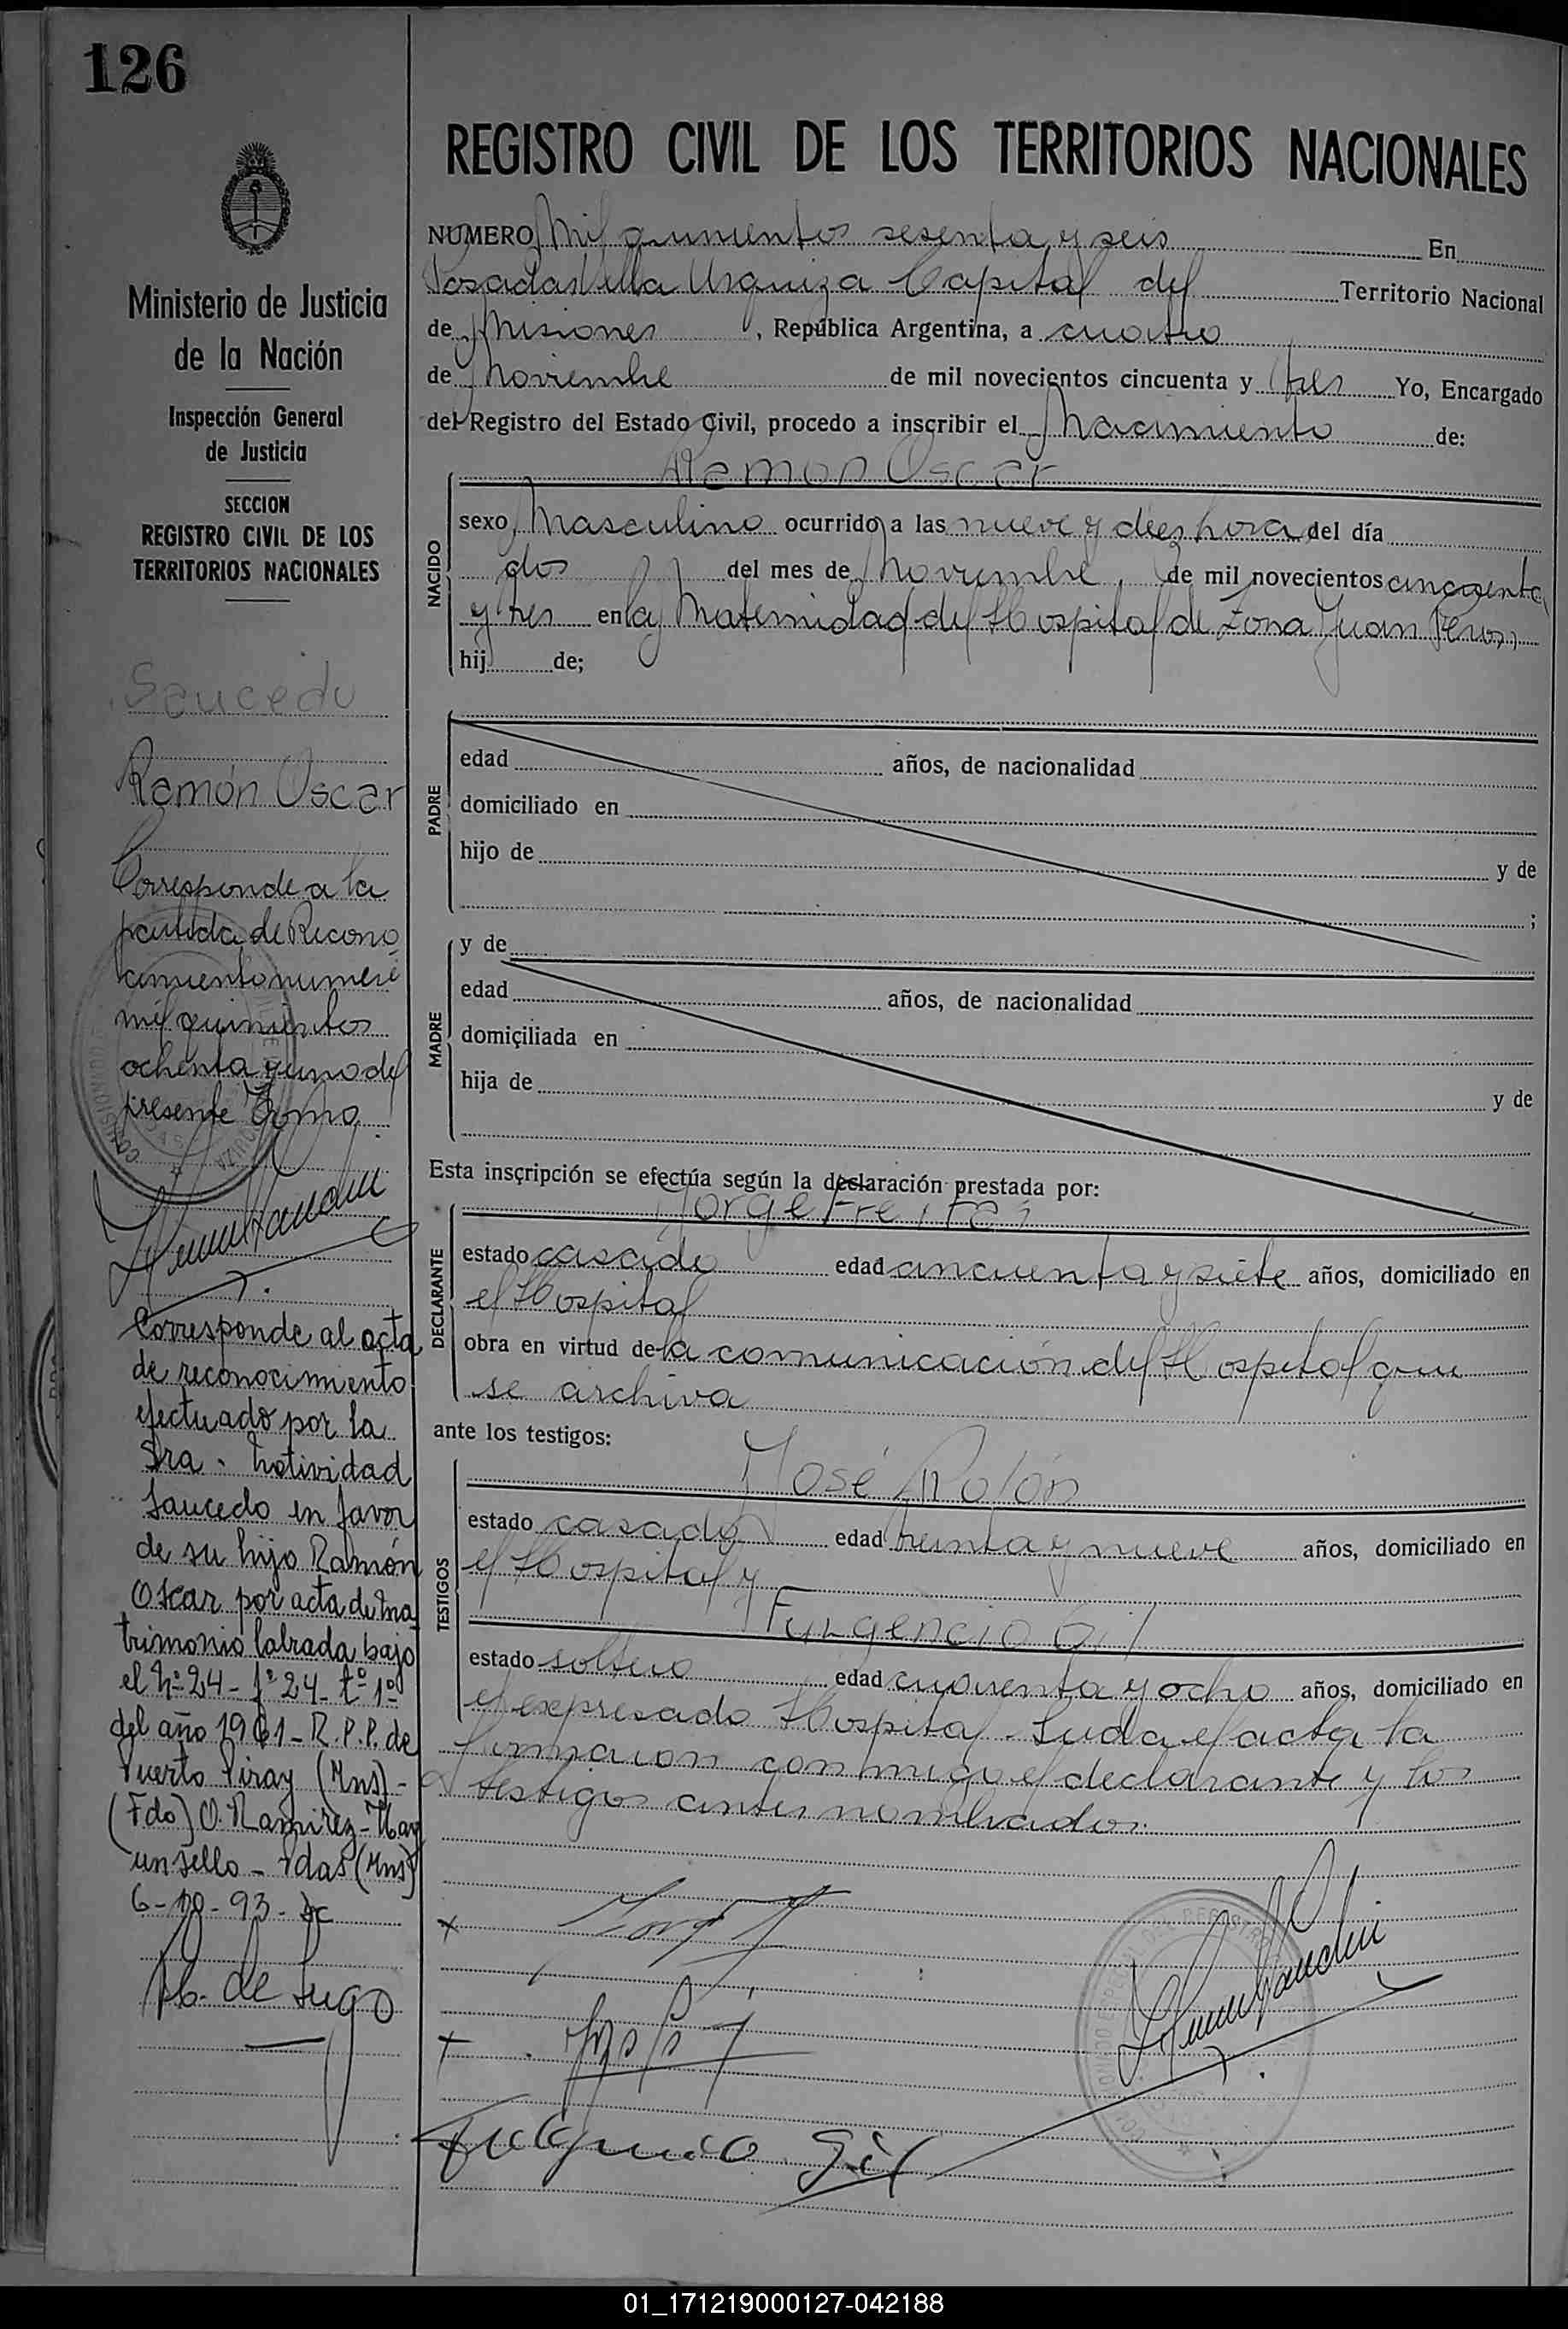 126
REGISTRO CIVIL DE LOS TERRITORIOS NACIONALES
Ministerio de Justicia
de la Nación
Inspección General
de Justicia
SECCION
REGISTRO CIVIL DE LOS
TERRITORIOS NACIONALES
Saucedo
Ramón Oscar
Corresponde a la
partida de Recono
cimiento numero
mil quinientos
ochenta y uno del
presente Tomo
Corresponde al acta
de reconocimiento
efectuado por la
Sra. Natividad
Saucedo en favor
de su hijo Ramón
Oscar por acta de ma
trimonio labrada bajo
el Nº 24 - fº 24 - tº 1º
del año 1961 - R.P.P. de
Puerto Piray (Mns) -
(Fdo) O. Ramirez - Hay
un sello - Pdas (Mns)
6-10-93-
de Lugo
NUMERO Mil quinientos sesenta y seis En
Posadas Villa Urquiza Capital del Territorio Nacional
de Misiones, República Argentina, a cuatro
de Noviembre de mil novecientos cincuenta y tres Yo, Encargado
del Registro del Estado Civil, procedo a inscribir el Nacimiento de:
Ramon Oscar
NACIDO
sexo Masculino ocurrido a las nueve y diez hora del día
dos del mes de Noviembre, de mil novecientos cincuenta
y tres en la Maternidad del Hospital de Zona Juan Peron
hij de;
PADRE
edad años, de nacionalidad
domiciliado en
hijo de y de
;
MADRE
y de
edad años, de nacionalidad
domiciliada en
hija de y de
Esta inscripción se efectúa según la declaración prestada por:
Jorge Freites
DECLARANTE
estado casado edad cincuenta y siete años, domiciliado en
el Hospital
obra en virtud de la comunicación del Hospital que
se archiva
ante los testigos:
José Rolón
TESTIGOS
estado casado edad treinta y nueve años, domiciliado en
el Hospital y
Fulgencio Gil
estado soltero edad cuarenta y ocho años, domiciliado en
el expresado Hospital. Leida el acta la
firmaron conmigo el declarante y los
testigos antes nombrados.
Fulgencio Gil
01_171219000127-042188